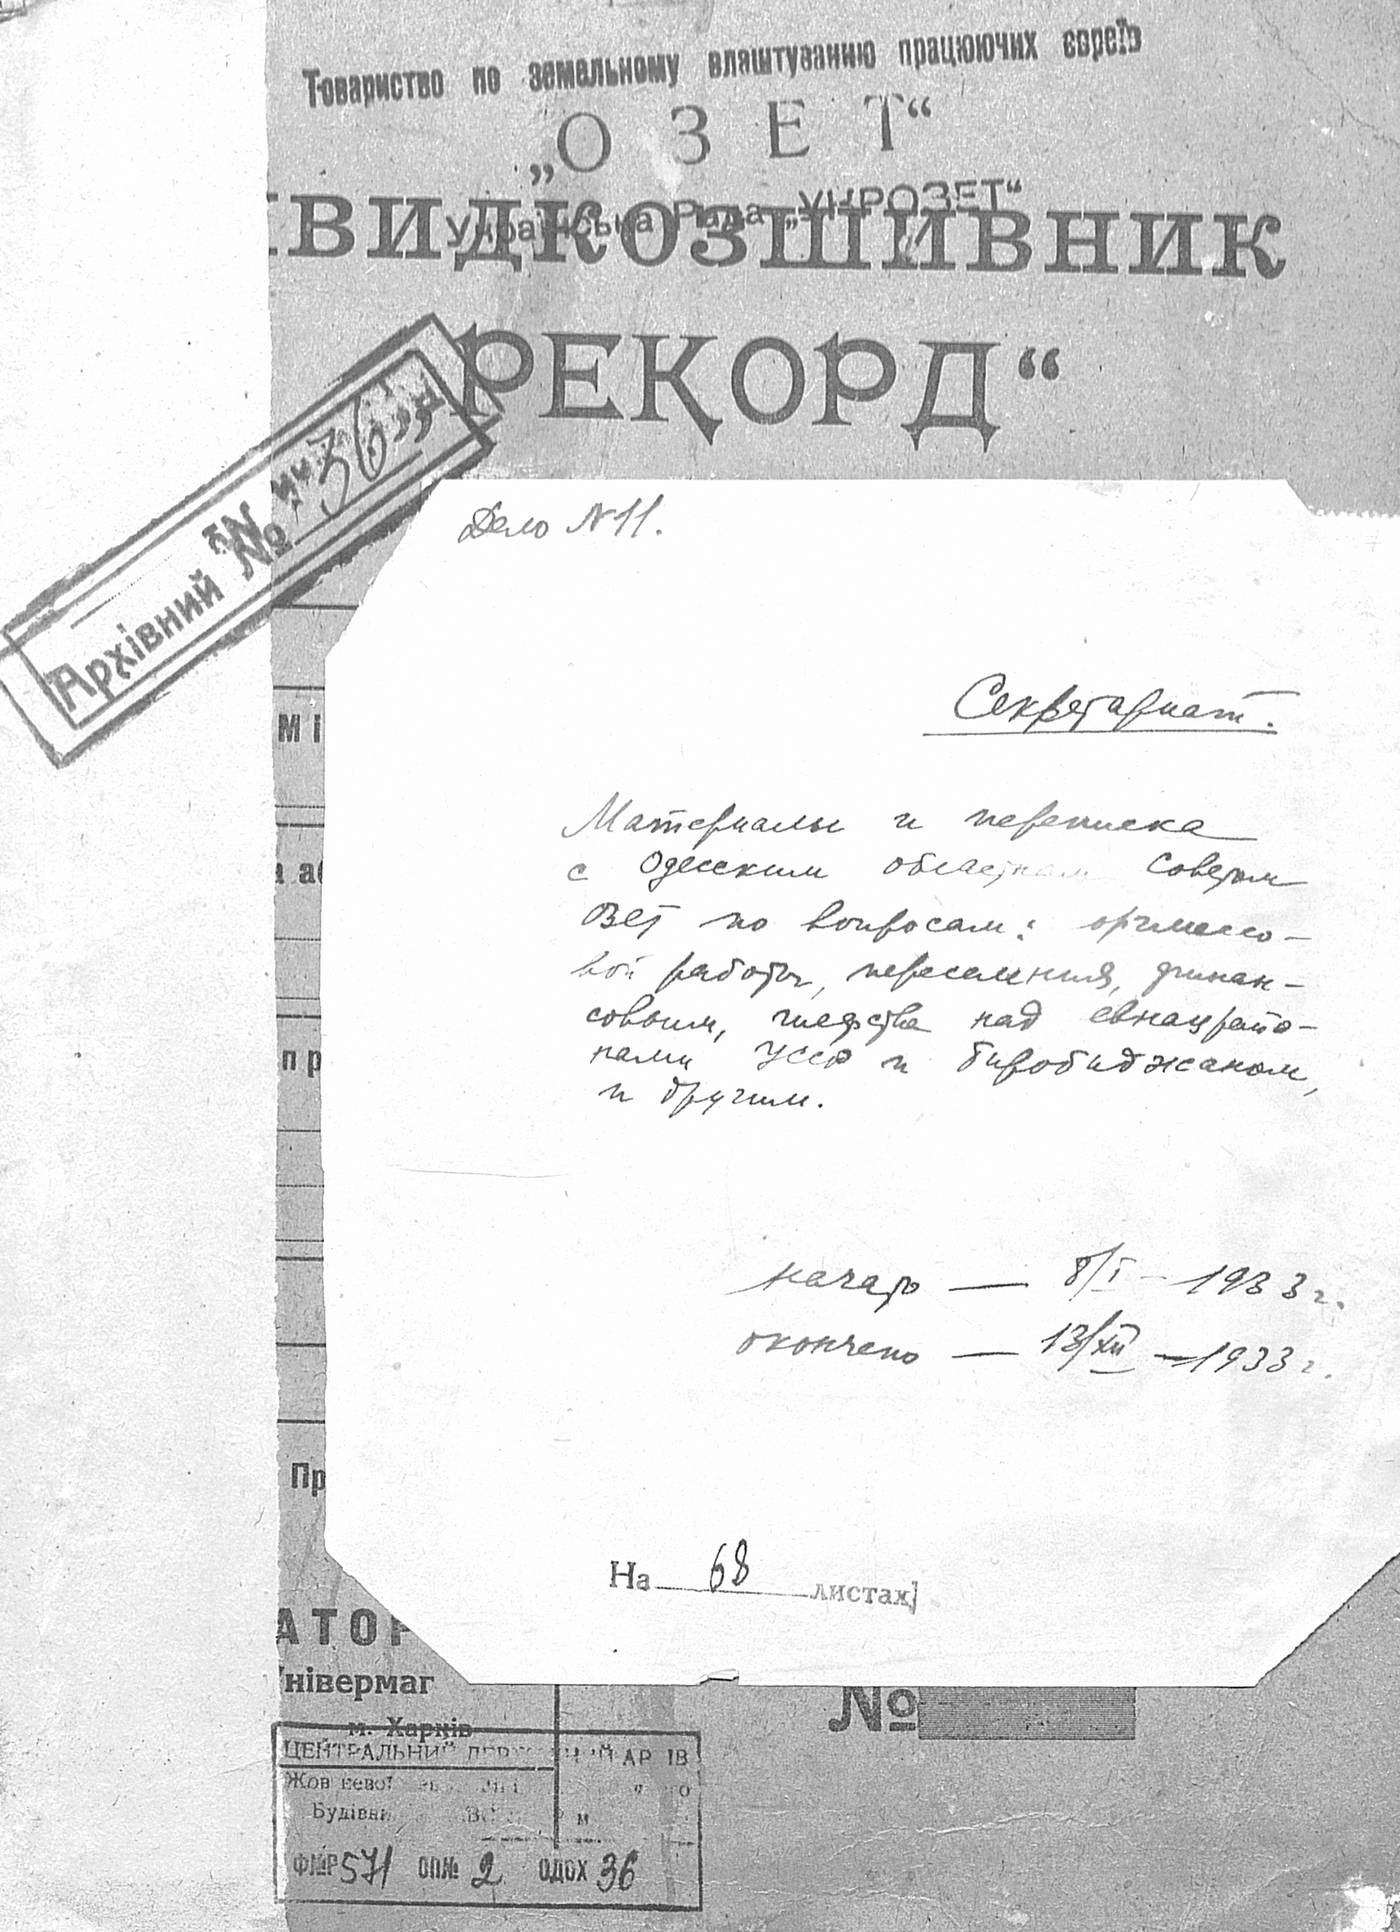 Товариство по земельному влаштуванню працюючих євреїв
„ОЗЕТ“
Українська Рада „УКРОЗЕТ“
ВИДКОЗШИВНИК
РЕКОРД“
Архівний № 36
Дело № 11.
Секретариат.
Материалы и переписка
с Одесским областным советом
ОЗЕТ по вопросам: оргмассо-
вой работы, переселения, финан-
совым, шефства над евнацрайо-
нами УССР и Биробиджаном,
и другим.
начато — 8/I — 1933 г.
окончено — 13/XII — 1933 г.
На 68 листах
МІ
а аб
пр
Пр
АТОР
Універмаг
м. Харків
№
ЦЕНТРАЛЬНИЙ ДЕРЖАВНИЙ АРХІВ
Будівн
Ф№Р571 ОП№ 2 ОДОХ 36